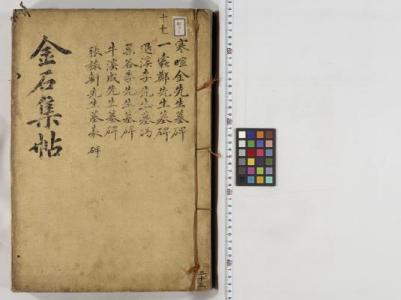 十七
寒暄金先生墓碑
一蠹鄭先生墓碑
退溪李先生墓碣
栗谷李先生墓碑
牛溪成先生墓碑
張旅軒先生墓表 碑
金石集帖
二十三